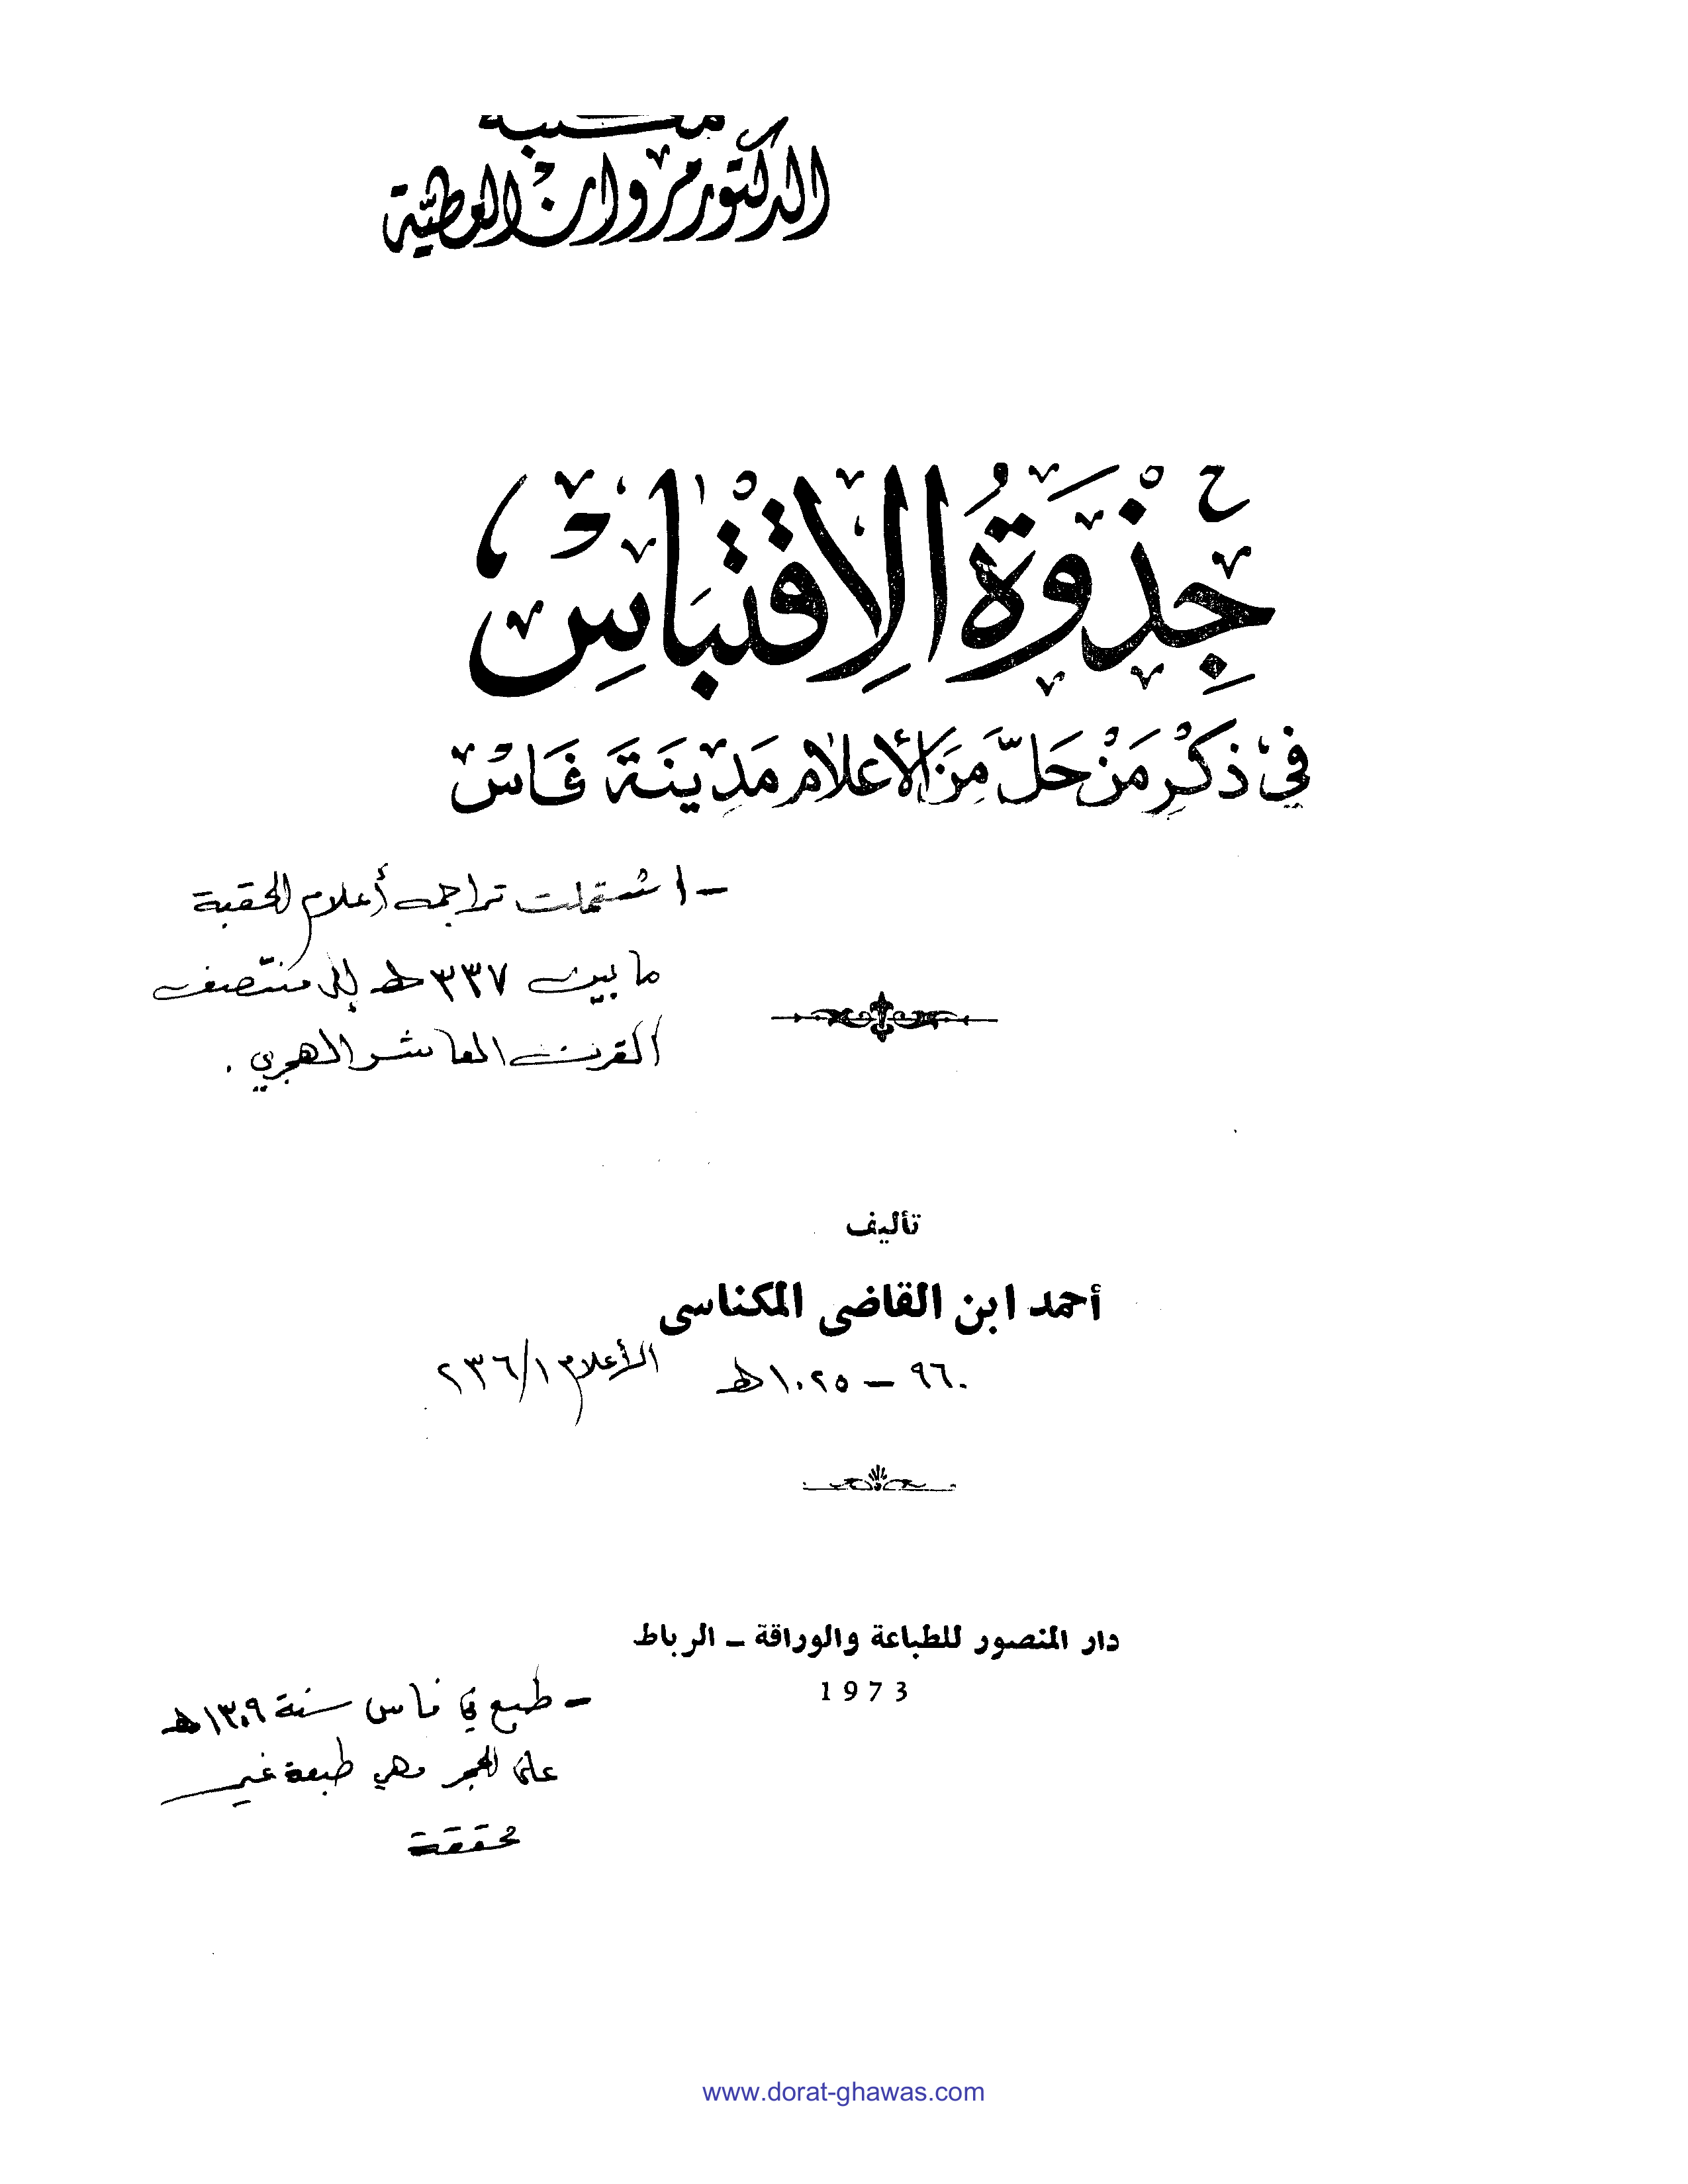 مكتبة
الدكتور مروان العطية
جِذْوَةُ الاِقْتِبَاسِ
فِي ذِكْرِ مَنْ حَلَّ مِنَ الأَعْلَامِ مَدِينَةَ فَاسْ
- اشتملت تراجمه أعلام الحقبة
ما بين ٣٣٧ هـ إلى منتصف
القرن العاشر الهجري .
تأليف
أحمد ابن القاضى المكناسى
٩٦٠ – ١٠٢٥ هـ الأعلام ١/٢٣٦
دار المنصور للطباعة والوراقة – الرباط
1973
- طبع في فاس سنة ١٣٠٩ هـ
على الحجر وهي طبعة غير
محققة
www.dorat-ghawas.com